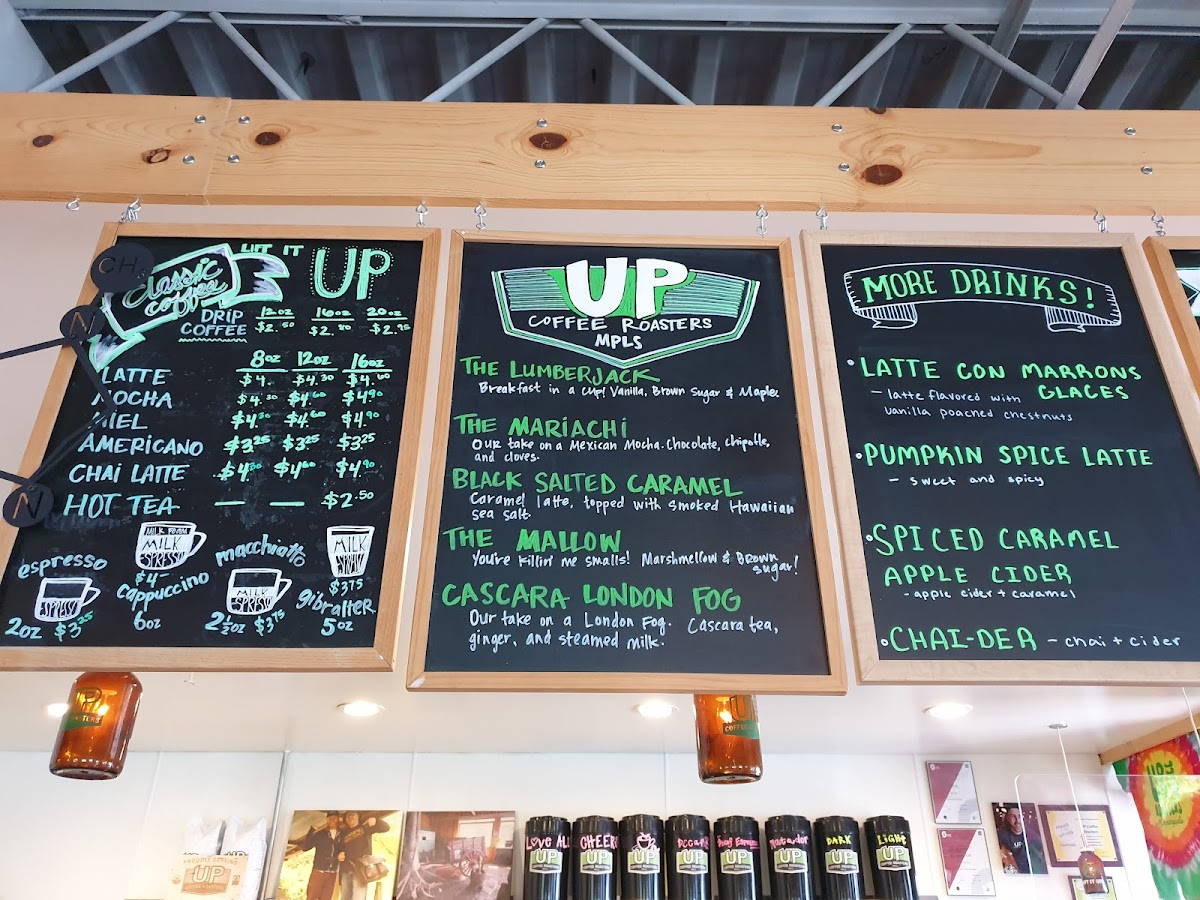 CH
N
N
LIFT IT UP
Classic
coffee
DRIP 12oz 16oz 20oz
COFFEE $2.50 $2.80 $2.95
8oz 12oz 16oz
LATTE $4. $4.30 $4.60
MOCHA $4.30 $4.60 $4.90
MIEL $4.30 $4.60 $4.90
AMERICANO $3.25 $3.25 $3.25
CHAI LATTE $4.30 $4.60 $4.90
HOT TEA — — $2.50
espresso
ESPRESSO
2oz $3.25
MILK FOAM
MILK
ESPRESSO
$4-
cappuccino
6oz
macchiatto
MILK
ESPRESSO
2½oz $3.75
MILK
$3.75
gibralter
5oz
UP
COFFEE ROASTERS
MPLS
THE LUMBERJACK
Breakfast in a cup! Vanilla, Brown Sugar & Maple.
THE MARIACHI
Our take on a Mexican Mocha. Chocolate, chipotle,
and cloves.
BLACK SALTED CARAMEL
Caramel latte, topped with smoked Hawaiian
sea salt.
THE MALLOW
You're killin' me smalls! Marshmellow & Brown
sugar!
CASCARA LONDON FOG
Our take on a London Fog. Cascara tea,
ginger, and steamed milk.
MORE DRINKS!
• LATTE CON MARRONS
GLACES
- latte flavored with
vanilla poached chestnuts
• PUMPKIN SPICE LATTE
- sweet and spicy
• SPICED CARAMEL
APPLE CIDER
- apple cider + caramel
• CHAI-DER - chai + cider
UP
COFFEE
UP
LOVE ALL
UP
CHEERY
UP
UP
Decaf
UP
UP
UP
DARK
UP
LIGHT
UP